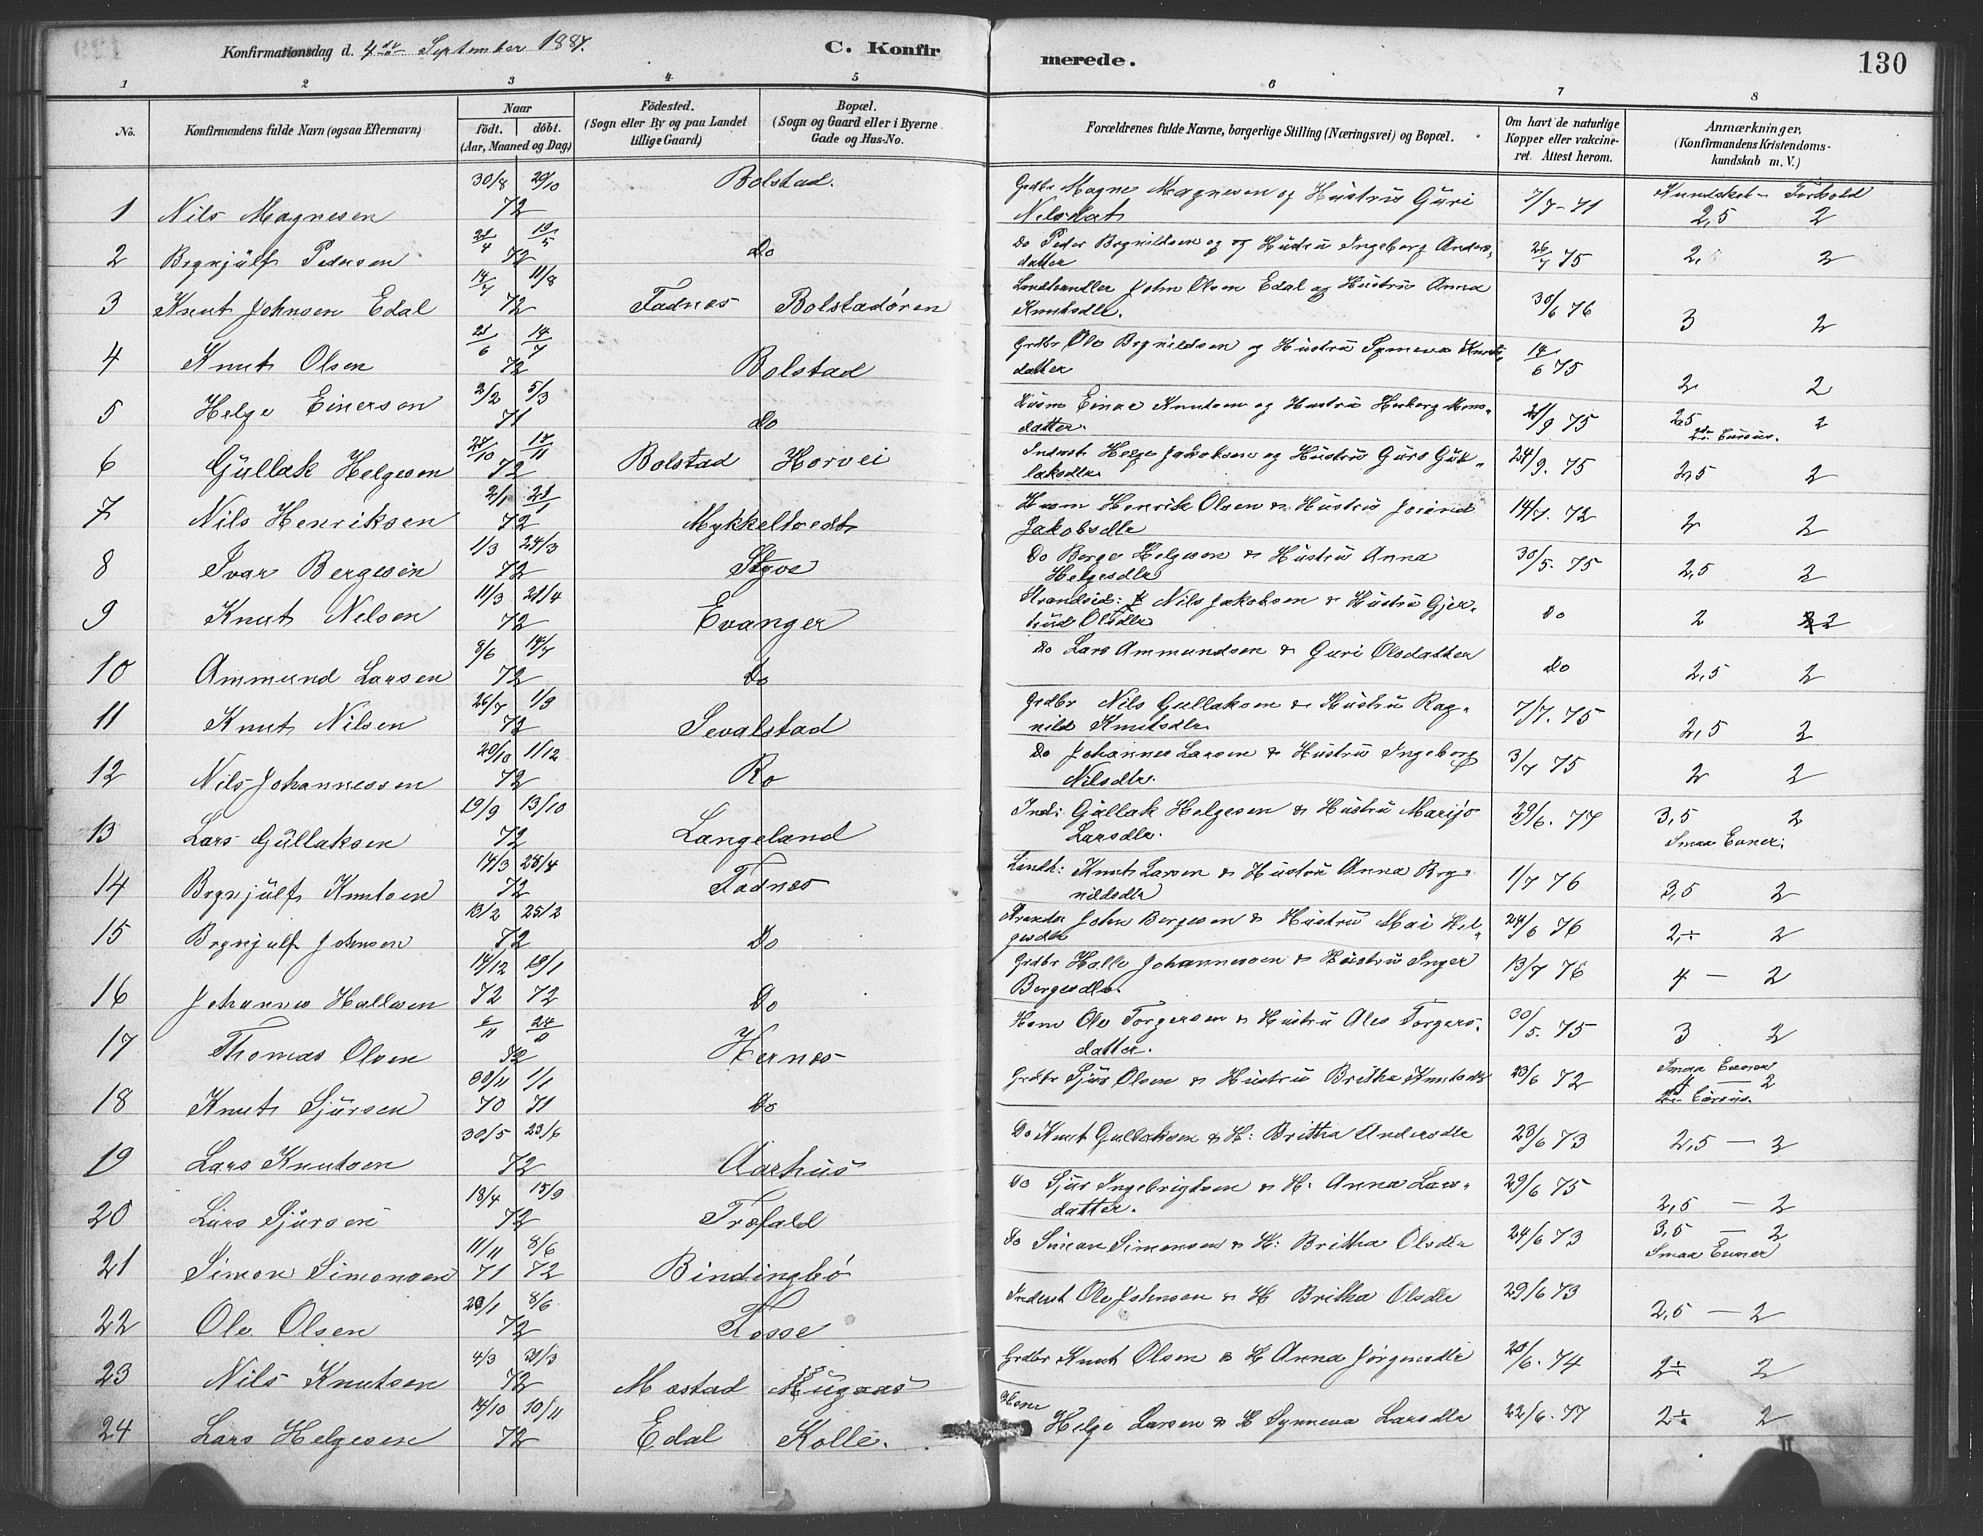 Konfirmationsdag d. 4de September 1887.
C. Konfirmerede.
130
1 2 3 4 5 6 7 8
No.
Konfirmandens fulde Navn (ogsaa Efternavn)
Naar
födt. döbt.
(Aar, Maaned og Dag)
Födested.
(Sogn eller By og paa Landet
tillige Gaard)
Bopæl.
(Sogn og Gaard eller i Byerne
Gade og Hus-No.
Forældrenes fulde Navne, borgerlige Stilling (Næringsvei) og Bopæl.
Om havt de naturlige
Kopper eller vakcineret. Attest herom.
Anmærkninger.
(Konfirmandens Kristendomskundskab m. V.)
Kundskab - Forhold
1 Nils Magnesen 30/8 29/10 72 Bolstad. Grdbr Magne Magnesen og Hustru Guri
Nilsdat 7/7-71 2,5 2
2 Brynjülf Pedersen 21/4 72 Do Do Peder Brynildsen og Hustru Ingeborg Andersdatter 26/7 75 2, 2
3 Knut Johnsen Edal 14/7 11/8 72 Fadnes Bolstadören Landhandler John Olsen Edal og Hustru Anna
Knutsdtr. 30/6 76 3 2
4 Knut Olsen 21/6 14/7 72 Bolstad Grdbr Ole Brynildsen og Hustru Synneva Knutsdatter 14/6 75 2 2
5 Helge Einersen 2/2 5/3 71 Do Husm Einar Knutsen og Hustru Herborg Monsdatter. 21/9 75 2,5 2
6 Güllak Helgesen 72 Bolstad Horvei Inderst Helge Jakobsen og Hustru Guro Gullaksdtr 24/9. 75 2,5 2
7 Nils Henriksen 2/1 21/1 72 Mykkeltvedt Husm Henrik Olsen & Hustru
Jakobsdtr 14/7. 72 2 2
8 Ivar Bergesen 1/3 24/3 72 Styve Do Berge Helgesen & Hustru Anna
Helgesdtr 30/5. 75 2,5 2
9 Knut Nelsen 11/3 21/4 72 Evanger Strandsid: Nils Jakobsen & Hustru Gjertrud Olsdtr Do 2 2
10 Ammund Larsen 9/6 14/7 72 Do Do Lars Ammundsen & Guri Olsdatter Do 2,5 2
11 Knut Nilsen 26/7 1/9 72 Sevalstad Grdbr Nils Gullaksen & Hustru Ragnild Knutsdtr. 7/7. 75 2,5 2
12 Nils Johannessen 20/10 1/12 72 Ro Do Johannes Larsen & Hustru Ingeborg
Nilsdtr. 3/7 75 2 2
13 Lars Güllaksen 19/9 13/10 72 Langeland Ind: Güllak Helgesen & Hustru Marijo
Larsdtr. 29/6. 77 3,5 2
Smaa Evner.
14 Brynjülf Knutsen 14/3 28/4 72 Fadnes Landh: Knut Larsen & Hustru Anna Brynildsdtr 1/7 76 3,5 2
15 Brynjulf Johnsen 13/2 25/2 72 Do Strandsi John Bergesen & Hustru Mai Helgesdtr 24/6 76 2,÷ 2
16 Johannes Hallesen 14/12 19/1 72 72 Do Grdbr Halle Johannessen & Hustru Inger
Bergesdtr. 13/7 76 4 - 2
17 Thomas Olsen 6/11 72 Hernes Husm Ole Torgersen & Hustru Ales Torgersdatter. 30/5. 75 3 2
18 Knut Sjursen 30/11 1/1 70 71 Do Grdbr Sjur Olsen & Hustru Britha Knutsdtr 23/6 72 Smaa Evner
4 - 2
19 Lars Knutsen 30/5 23/6 72 Aarhus Do Knut Gullaksen & H: Britha Andersdtr 23/6 73 2,5 - 2
20 Lars Sjursen 18/4 15/9 72 Træfald Do Sjur Ingebrigtsen & H. Anna Larsdatter. 29/6 75 2,5 - 2
21 Simon Simonsen 11/11 8/6 71 72 Bindingsbö Do Simon Simonsen & H: Britha Olsdtr 24/6 73 3,5 - 2
Smaa Evner
22 Ole Olsen 8/6 72 Fosse Inderst Ole Johnsen & H Britha Olsdtr 29/6 73 2,5 - 2
23 Nils Knutsen 4/3 31/3 72 Mostad Grdbr Knut Olsen & H Anna Jörgensdtr 6. 74 2÷ 2
24 Lars Helgesen 10/11 72 Edal Kolle. Husm
Helge Larsen & H Synneva Larsdtr 22/6. 77 2÷ 2